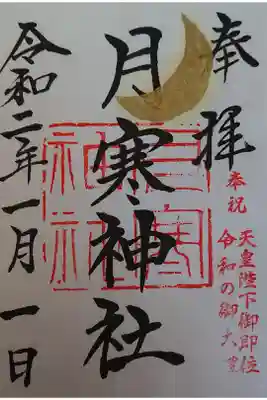 奉拝
奉祝
天皇陛下御即位
令和の御大
月寒神社
令和二年一月一日